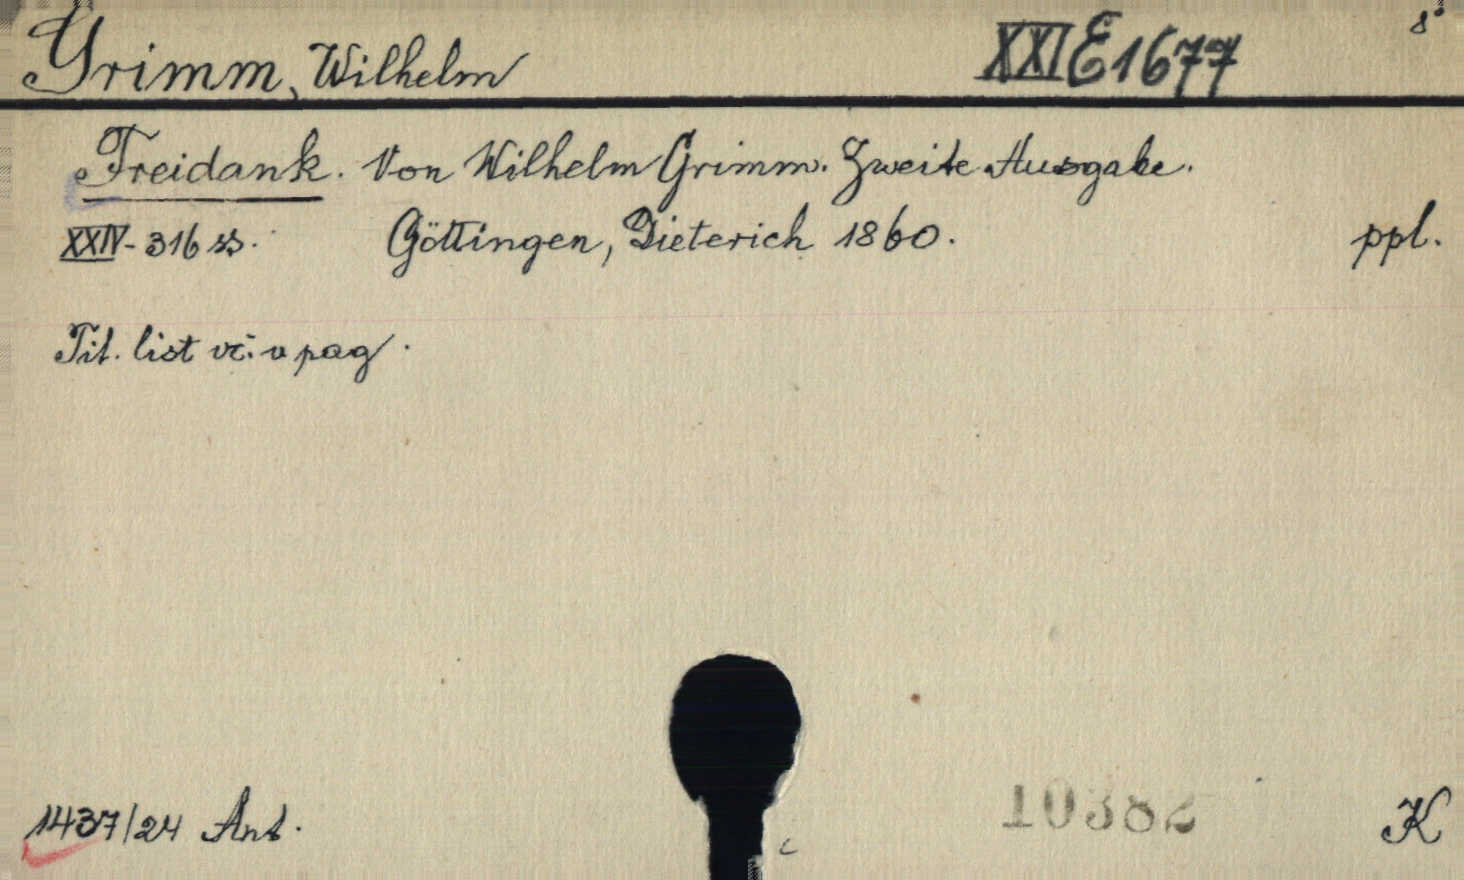 Grimm, Wilhelm XXI E 1677 8°
Freidank. Von Wilhelm Grimm. Zweite Ausgabe.
XXIV-316 ss. Göttingen, Dieterich 1860. ppl.
Tit. list vč. v pag.
1437/24 Ant. 10382 K